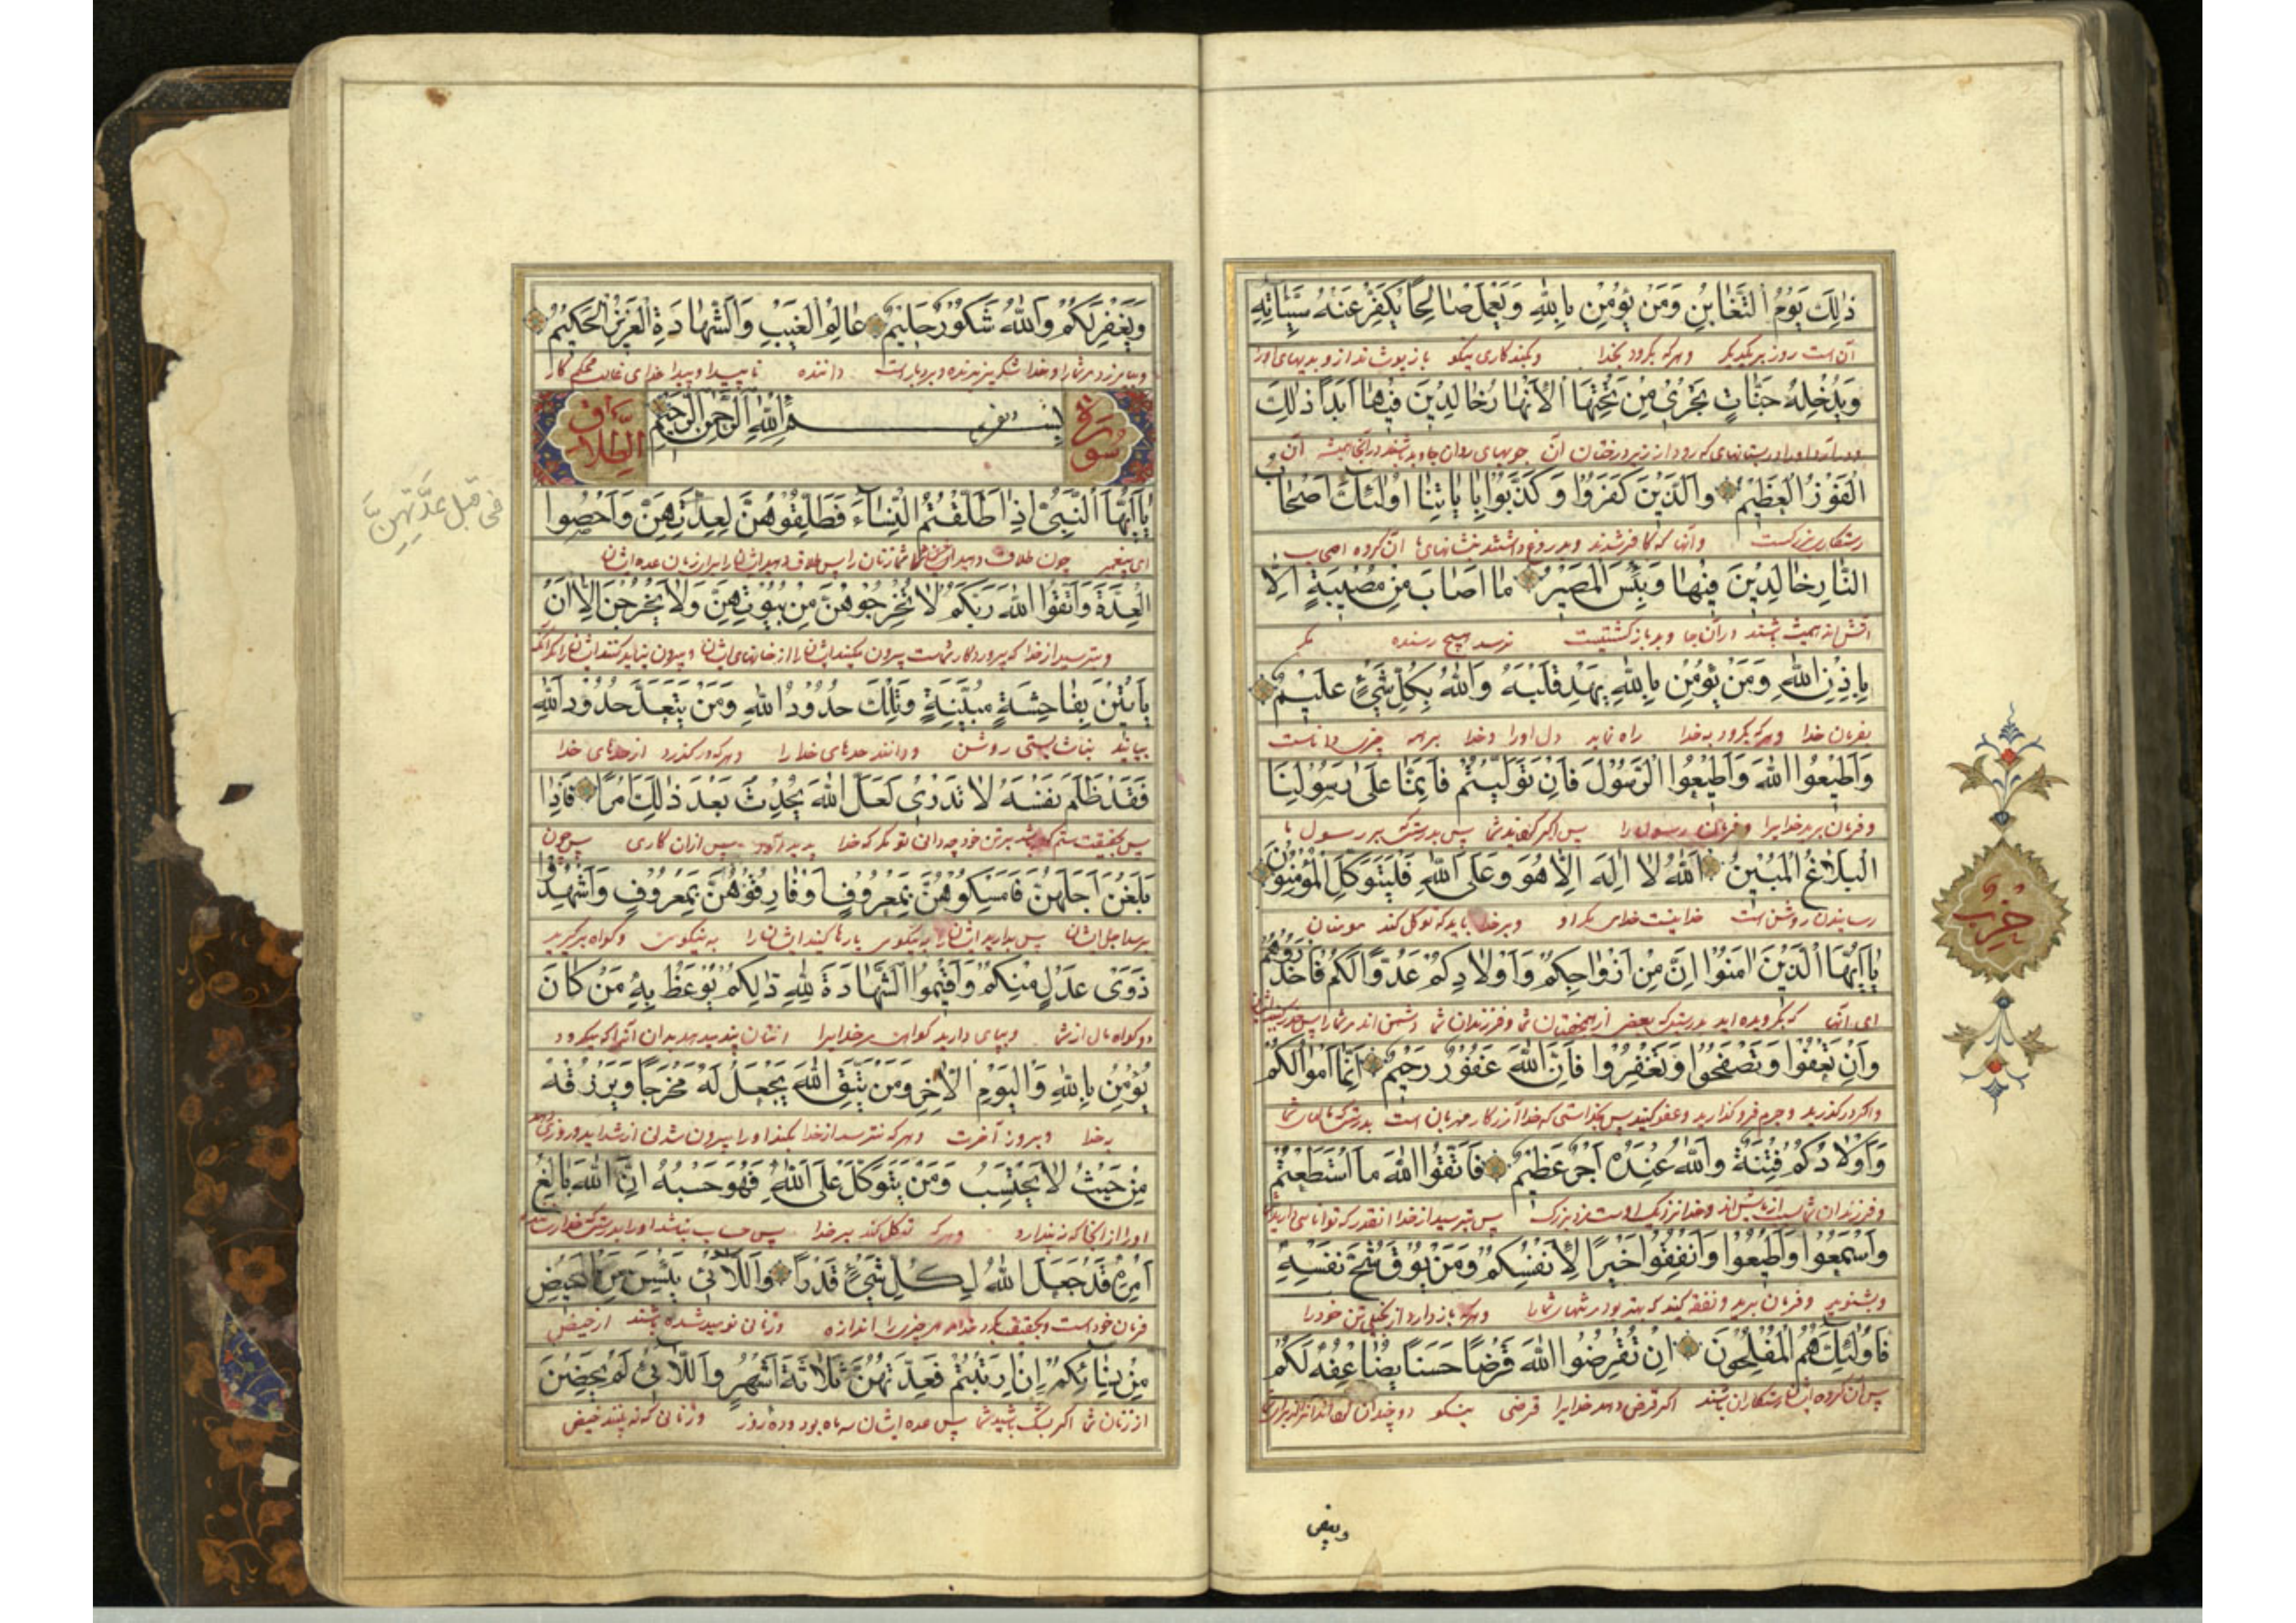 ذٰلِكَ يَوْمُ التَّغٰابُنِ وَمَنْ يُؤْمِنْ بِاللّٰهِ وَيَعْمَلْ صٰالِحًا يُكَفِّرْ عَنْهُ سَيِّئٰاتِهِ
آن است روز بر یکدیگر وهرکه بگرود بخدا وبکند کاری نیکو باز پوشاند از و بدیهای اورا
وَيُدْخِلْهُ جَنّٰاتٍ تَجْرِي مِنْ تَحْتِهَا الْأَنْهٰارُ خٰالِدِينَ فِيهٰا أَبَدًا ذٰلِكَ
ودرآرد اورا در بستانهای که رود از زیر درختان آن جویهای روان جاوید باشند درآنجا همیشه آن
الْفَوْزُ الْعَظِيمُ وَالَّذِينَ كَفَرُوا وَكَذَّبُوا بِاٰيٰاتِنٰا أُولٰئِكَ أَصْحٰابُ
رستکاری بزرکست وآنها که کافر شدند وبدروغ داشتند نشانهای ما آن کروه اصحاب
النّٰارِ خٰالِدِينَ فِيهٰا وَبِئْسَ الْمَصِيرُ مٰا أَصٰابَ مِنْ مُصِيبَةٍ إِلّٰا
آتش اند همیشه باشند درآن جا وبد بازگشتیست نرسد هیچ رسنده مکر
بِإِذْنِ اللّٰهِ وَمَنْ يُؤْمِنْ بِاللّٰهِ يَهْدِ قَلْبَهُ وَاللّٰهُ بِكُلِّ شَيْءٍ عَلِيمٌ
بفرمان خدا وهرکه بگرود به خدا راه نماید دل اورا وخدا بر همه چیزی داناست
وَأَطِيعُوا اللّٰهَ وَأَطِيعُوا الرَّسُولَ فَإِنْ تَوَلَّيْتُمْ فَإِنَّمٰا عَلىٰ رَسُولِنَا
وفرمان برید خدایرا وفرمان رسول را پس اگر شما پس بدرستیکه بر رسول ما
الْبَلٰاغُ الْمُبِينُ اللّٰهُ لٰا إِلٰهَ إِلّٰا هُوَ وَعَلَى اللّٰهِ فَلْيَتَوَكَّلِ الْمُؤْمِنُونَ
رسانیدن روشن است خدا نیست خدای مکر او وبر خدا باید که توکل کند مومنان
يٰا أَيُّهَا الَّذِينَ اٰمَنُوا إِنَّ مِنْ أَزْوٰاجِكُمْ وَأَوْلٰادِكُمْ عَدُوًّا لَكُمْ فَاحْذَرُوهُمْ
ای آنها که بگرویده اید بدرستیکه بعضی از شما وفرزندان شما دشمن اند مر شمارا پس
وَإِنْ تَعْفُوا وَتَصْفَحُوا وَتَغْفِرُوا فَإِنَّ اللّٰهَ غَفُورٌ رَحِيمٌ إِنَّمٰا أَمْوٰالُكُمْ
واگر در گذرید وجرم فرو گذارید وعفو کنید پس خدا آمرزکار مهربان است بدرستیکه مالهای شما
وَأَوْلٰادُكُمْ فِتْنَةٌ وَاللّٰهُ عِنْدَهُ أَجْرٌ عَظِيمٌ فَاتَّقُوا اللّٰهَ مَا اسْتَطَعْتُمْ
وفرزندان شما آزمایش اند وخدا نزدیک اوست مزد بزرک پس بترسید از خدا آنقدر که توانایی دارید
وَاسْمَعُوا وَأَطِيعُوا وَأَنْفِقُوا خَيْرًا لِأَنْفُسِكُمْ وَمَنْ يُوقَ شُحَّ نَفْسِهِ
وبشنوید وفرمان برید ونفقه کنید که بهتر بود شمارا وهرکه بازدارد از بخیلی تن خودرا
فَأُولٰئِكَ هُمُ الْمُفْلِحُونَ إِنْ تُقْرِضُوا اللّٰهَ قَرْضًا حَسَنًا يُضٰاعِفْهُ لَكُمْ
پس آن کروه ایشان رستکاران باشند اگر قرض دهید خدایرا قرضی نیکو دو چندان
حزب
ويغفر
وَيَغْفِرْ لَكُمْ وَاللّٰهُ شَكُورٌ حَلِيمٌ عٰالِمُ الْغَيْبِ وَالشَّهٰادَةِ الْعَزِيزُ الْحَكِيمُ
وبیامرزد مر شمارا وخدا شکر پذیرنده وبردبار است داننده ناپیدا وپیدا خدای غالب محکم کار
سورة
بِسْمِ اللّٰهِ الرَّحْمٰنِ الرَّحِيمِ
الطلاق
يٰا أَيُّهَا النَّبِيُّ إِذٰا طَلَّقْتُمُ النِّسٰاءَ فَطَلِّقُوهُنَّ لِعِدَّتِهِنَّ وَأَحْصُوا
فى قبل عدّتهنّ
ای پیغمبر چون طلاق دهید شما زنان را پس طلاق دهید ایشان را برای زمان عده ایشان
الْعِدَّةَ وَاتَّقُوا اللّٰهَ رَبَّكُمْ لٰا تُخْرِجُوهُنَّ مِنْ بُيُوتِهِنَّ وَلٰا يَخْرُجْنَ إِلّٰا أَنْ
وبترسید از خدا که پروردگار شماست بیرون مکنید ایشان را از خانهای ایشان وبیرون نیایند مکر آنکه
يَأْتِينَ بِفٰاحِشَةٍ مُبَيِّنَةٍ وَتِلْكَ حُدُودُ اللّٰهِ وَمَنْ يَتَعَدَّ حُدُودَ اللّٰهِ
بیایند روشن ودانند حدهای خدا را وهرکه در گذرد از حدهای خدا
فَقَدْ ظَلَمَ نَفْسَهُ لٰا تَدْرِي لَعَلَّ اللّٰهَ يُحْدِثُ بَعْدَ ذٰلِكَ أَمْرًا فَإِذٰا
پس بحقیقت ستم بر تن خود چه دانی تو مکر که خدا پدید آورد پس از آن کاری پس چون
بَلَغْنَ أَجَلَهُنَّ فَأَمْسِكُوهُنَّ بِمَعْرُوفٍ أَوْ فٰارِقُوهُنَّ بِمَعْرُوفٍ وَأَشْهِدُوا
برسد اجل ایشان پس بدارید ایشان را به نیکویی یا رها کنید ایشان را به نیکویی وگواه برگیرید
ذَوَيْ عَدْلٍ مِنْكُمْ وَأَقِيمُوا الشَّهٰادَةَ لِلّٰهِ ذٰلِكُمْ يُوعَظُ بِهِ مَنْ كٰانَ
دو کواه از شما وبپای دارید کواهی مر خدایرا پند بدان آنرا که بگرود
يُؤْمِنُ بِاللّٰهِ وَالْيَوْمِ الْاٰخِرِ وَمَنْ يَتَّقِ اللّٰهَ يَجْعَلْ لَهُ مَخْرَجًا وَيَرْزُقْهُ
به خدا وبروز آخرت وهرکه بترسد از خدا بکند اورا بیرون شدن از شداید وروزی دهد
مِنْ حَيْثُ لٰا يَحْتَسِبُ وَمَنْ يَتَوَكَّلْ عَلَى اللّٰهِ فَهُوَ حَسْبُهُ إِنَّ اللّٰهَ بٰالِغُ
اورا از آنجا که نپندارد وهرکه توکل کند بر خدا پس باشد اورا بدرستیکه خدا
أَمْرِهِ قَدْ جَعَلَ اللّٰهُ لِكُلِّ شَيْءٍ قَدْرًا وَاللّٰائِي يَئِسْنَ مِنَ الْمَحِيضِ
فرمان خود است وبحقیقت کرد خدا هر چیزی را اندازه وزنانی نومید شده باشند از حیض
مِنْ نِسٰائِكُمْ إِنِ ارْتَبْتُمْ فَعِدَّتُهُنَّ ثَلٰاثَةُ أَشْهُرٍ وَاللّٰائِي لَمْ يَحِضْنَ
از زنان شما اگر بشک باشید شما پس عده ایشان سه ماه بود وزنانی که نه بینند حیض